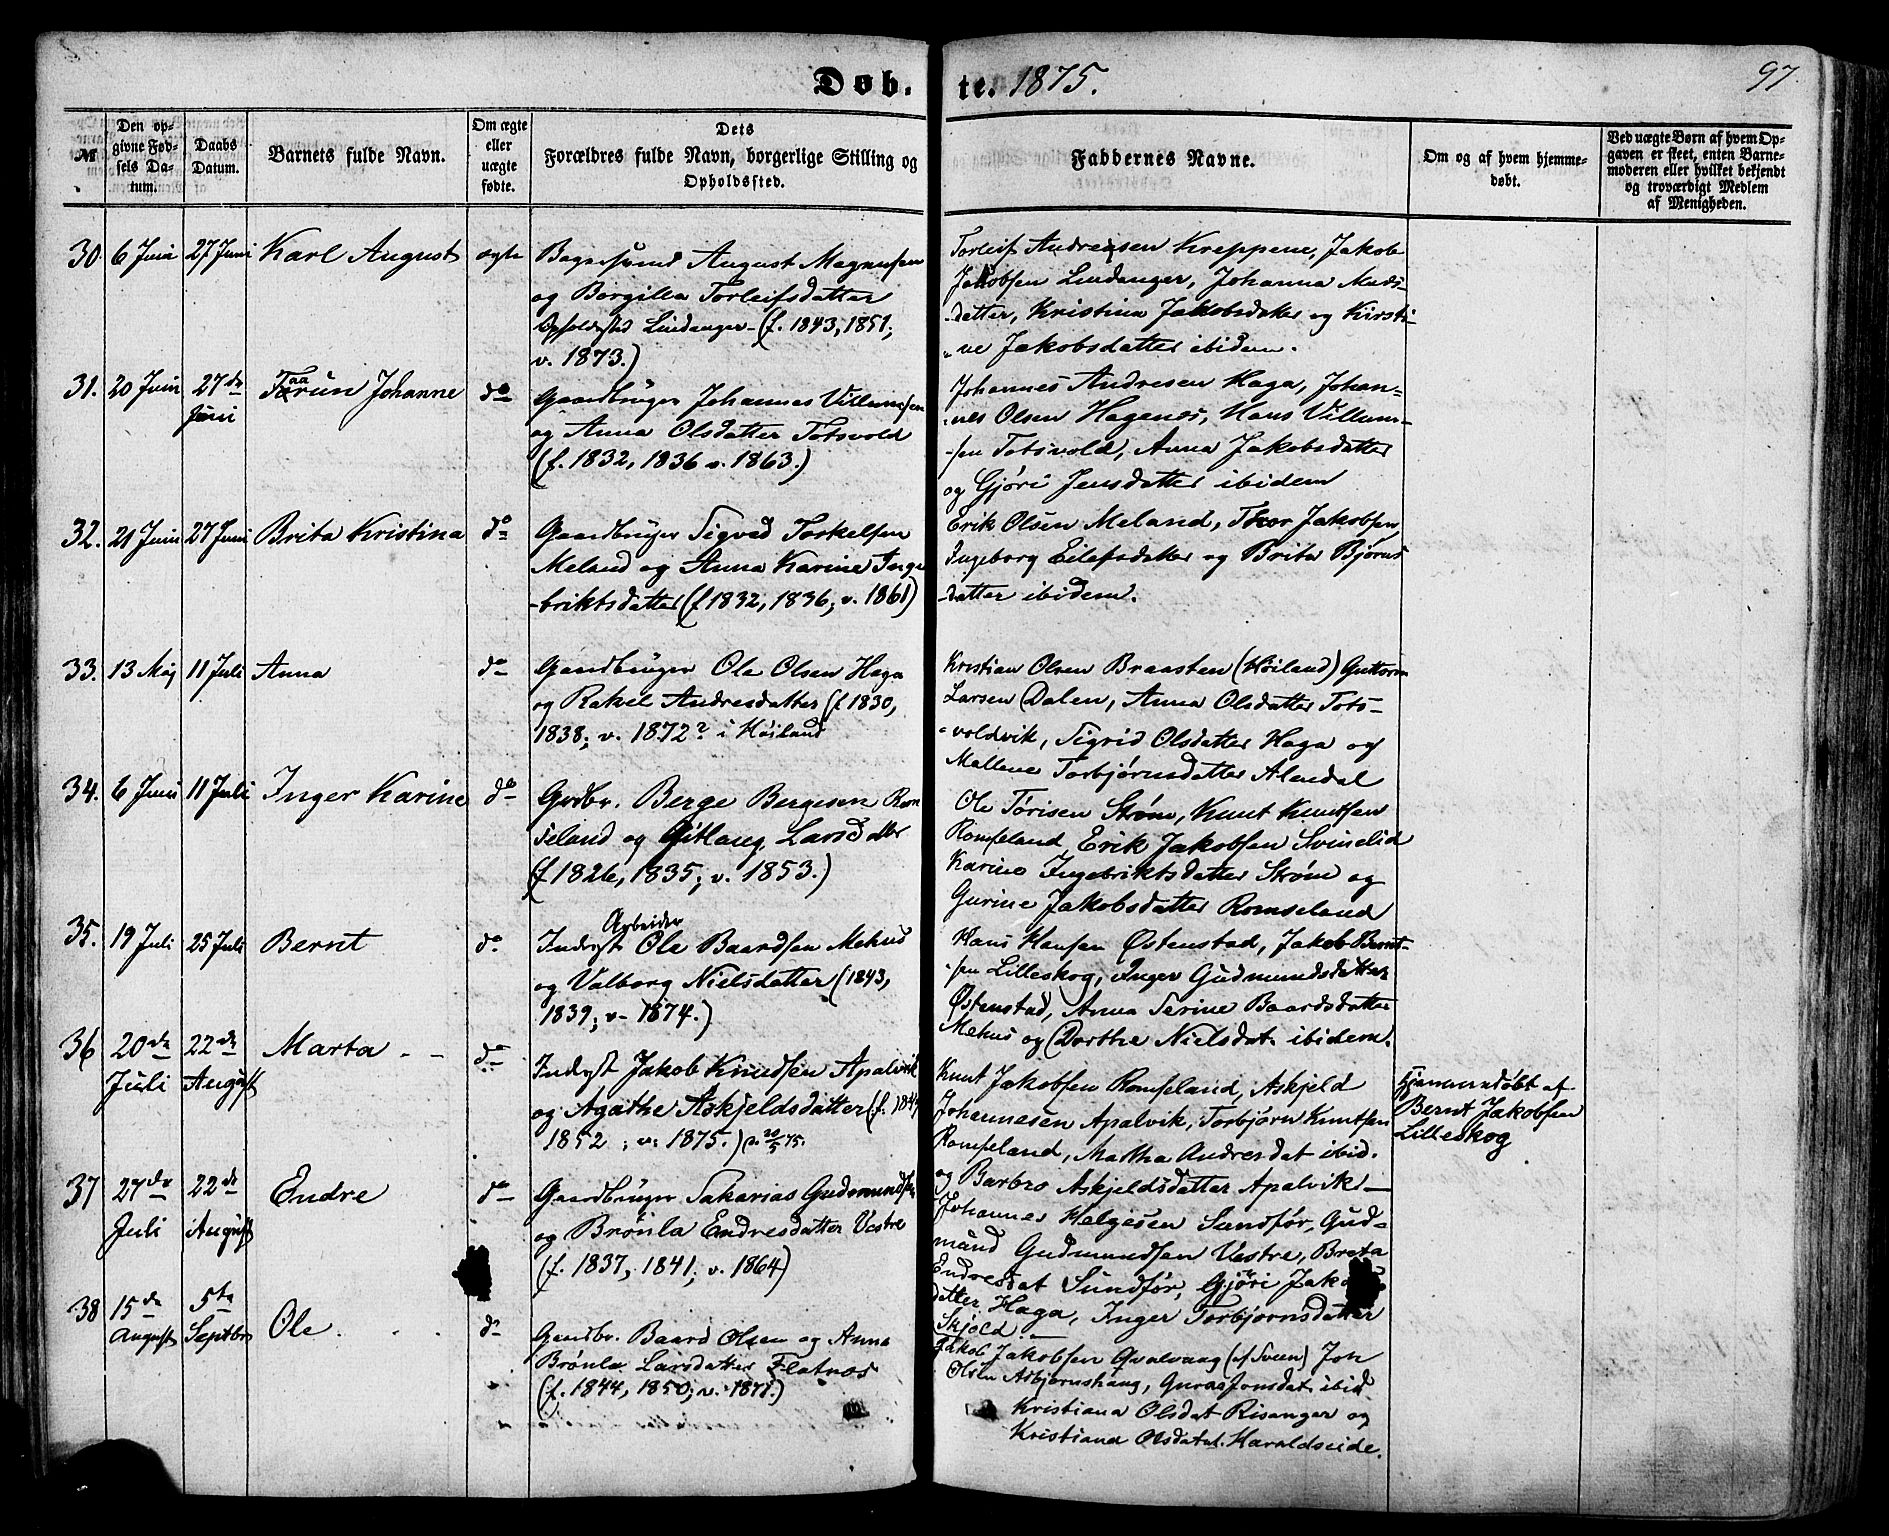 Døb. te. 1875. 97.
№
Den opgivne Fødsels Datum.
Daabs Datum.
Barnets fulde Navn.
Om ægte eller uægte fødte.
Dets
Forældres fulde Navn, borgerlige Stilling og
Opholdssted.
Faddernes Navne.
Om og af hvem hjemme-
døbt.
Ved uægte Børn af hvem Op-
gaven er skeet, enten Barne-
moderen eller hvilket bekjendt
og troværdigt Medlem
af Menigheden.
30. 6 Juni 27 Juni Karl August ægte
August Magnusen
og Borgilla Torleifsdatter
Opholdssted Lindanger - (f. 1843, 1851;
v. 1873.)
Torleif Andreasen Kreppene, Jakob
Jakobsen Lindanger, Johanna Mads-
datter, Kristina Jakobsdatter og Kirsti-
ne Jakobsdatter ibidem.
31. 20 Juni 27de Juni Johanne do
Gaardbruger Johannes Villumsen
og Anna Olsdatter Totsvold
(f. 1832, 1836 v. 1863.)
Johannes Andresen Haga, Johan-
nes Olsen Hagenes, Hans Villum-
sen Totsvold, Anna Jakobsdatter
og Gjøri Jensdatter ibidem
32. 21 Juni 27 Juni Brita Kristina do
Gaardbruger Sigvad Torkelsen
Meland og Anna Karine Inge-
briktsdatter (f. 1832, 1836; v. 1861)
Erik Olsen Meland, Thor Jakobsen
Ingeborg Eilefsdatter og Brita Bjørns
datter ibidem.
33. 13 Maj 11 Juli Anna do
Gaardbruger Ole Olsen Haga
og Rakel Andresdatter (f. 1830,
1838; v. 1872? i Høiland
Kristian Olsen Braasten (Høiland) Guttorm
Larsen Dalen, Anna Olsdatter Tots-
voldvik, Sigrid Olsdatter Haga og
Mallene Torbjørnsdatter Alendal
34. 6 Juni 11 Juli Inger Karine do
Grdbr. Berge Bergesen Rom-
seland og Larsdatter
(f. 1826, 1835; v. 1853.)
Ole Tørisen Strøm, Knut Knutsen
Romseland, Erik Jakobsen Svinelid
Karine Ingebriktsdatter Strøm og
Gurine Jakobsdatter Romseland
35. 19 Juli 25 Juli Bernt do
Arbeider
Inderst Ole Baardsen Mehus
og Valborg Nielsdatter (1843,
1839; v. 1874.)
Hans Hansen Østenstad, Jakob Bernt-
sen Lilleskog, Inger Gudmundsdatter
Østenstad, Anna Serine Baardsdatter
Mehus og Dorthe Nielsdat. ibidem.
36 20de Juli 22de August Marta do
Inderst Jakob Knudsen Apalvik
og Agathe Askjeldsdatter (f.
1852; v. 1875.) v. 20/5 75.
Knut Jakobsen Romseland, Askjeld
Johannesen Apalvik, Torbjørn Knutsen
Romseland, Martha Andresdat ibid.
og Barbro Askjeldsdatter Apalvik -
Hjemmedøbt af
Bernt Jakobsen
Lilleskog
37 27de Juli 22de August Endre do
Gaardbruger Sakarias Gudmundsen
og Brønla Endresdatter Vestre
(f. 1837, 1841; v. 1864)
Johannes Helgesen Sundfør, Gud-
mund Gudmundsen Vestre, Breta
Endresdat Sundfør, Gjøri
datter Haga, Inger Torbjørnsdatter
Skjold. -
38 15de August 5te Septbr Ole do
Gaardbr. Baard Olsen og Anna
Brønla Larsdatter Flatnes
(f. 1844, 1850; v. 1871.)
Jakob Jakobsen Qvalvaag (af Sveen) Joh
Olsen Asbjørnshaug, Jonsdat. ibid
Kristiana Olsdat Risanger og
Kristiana Olsdatat. Haraldseide.